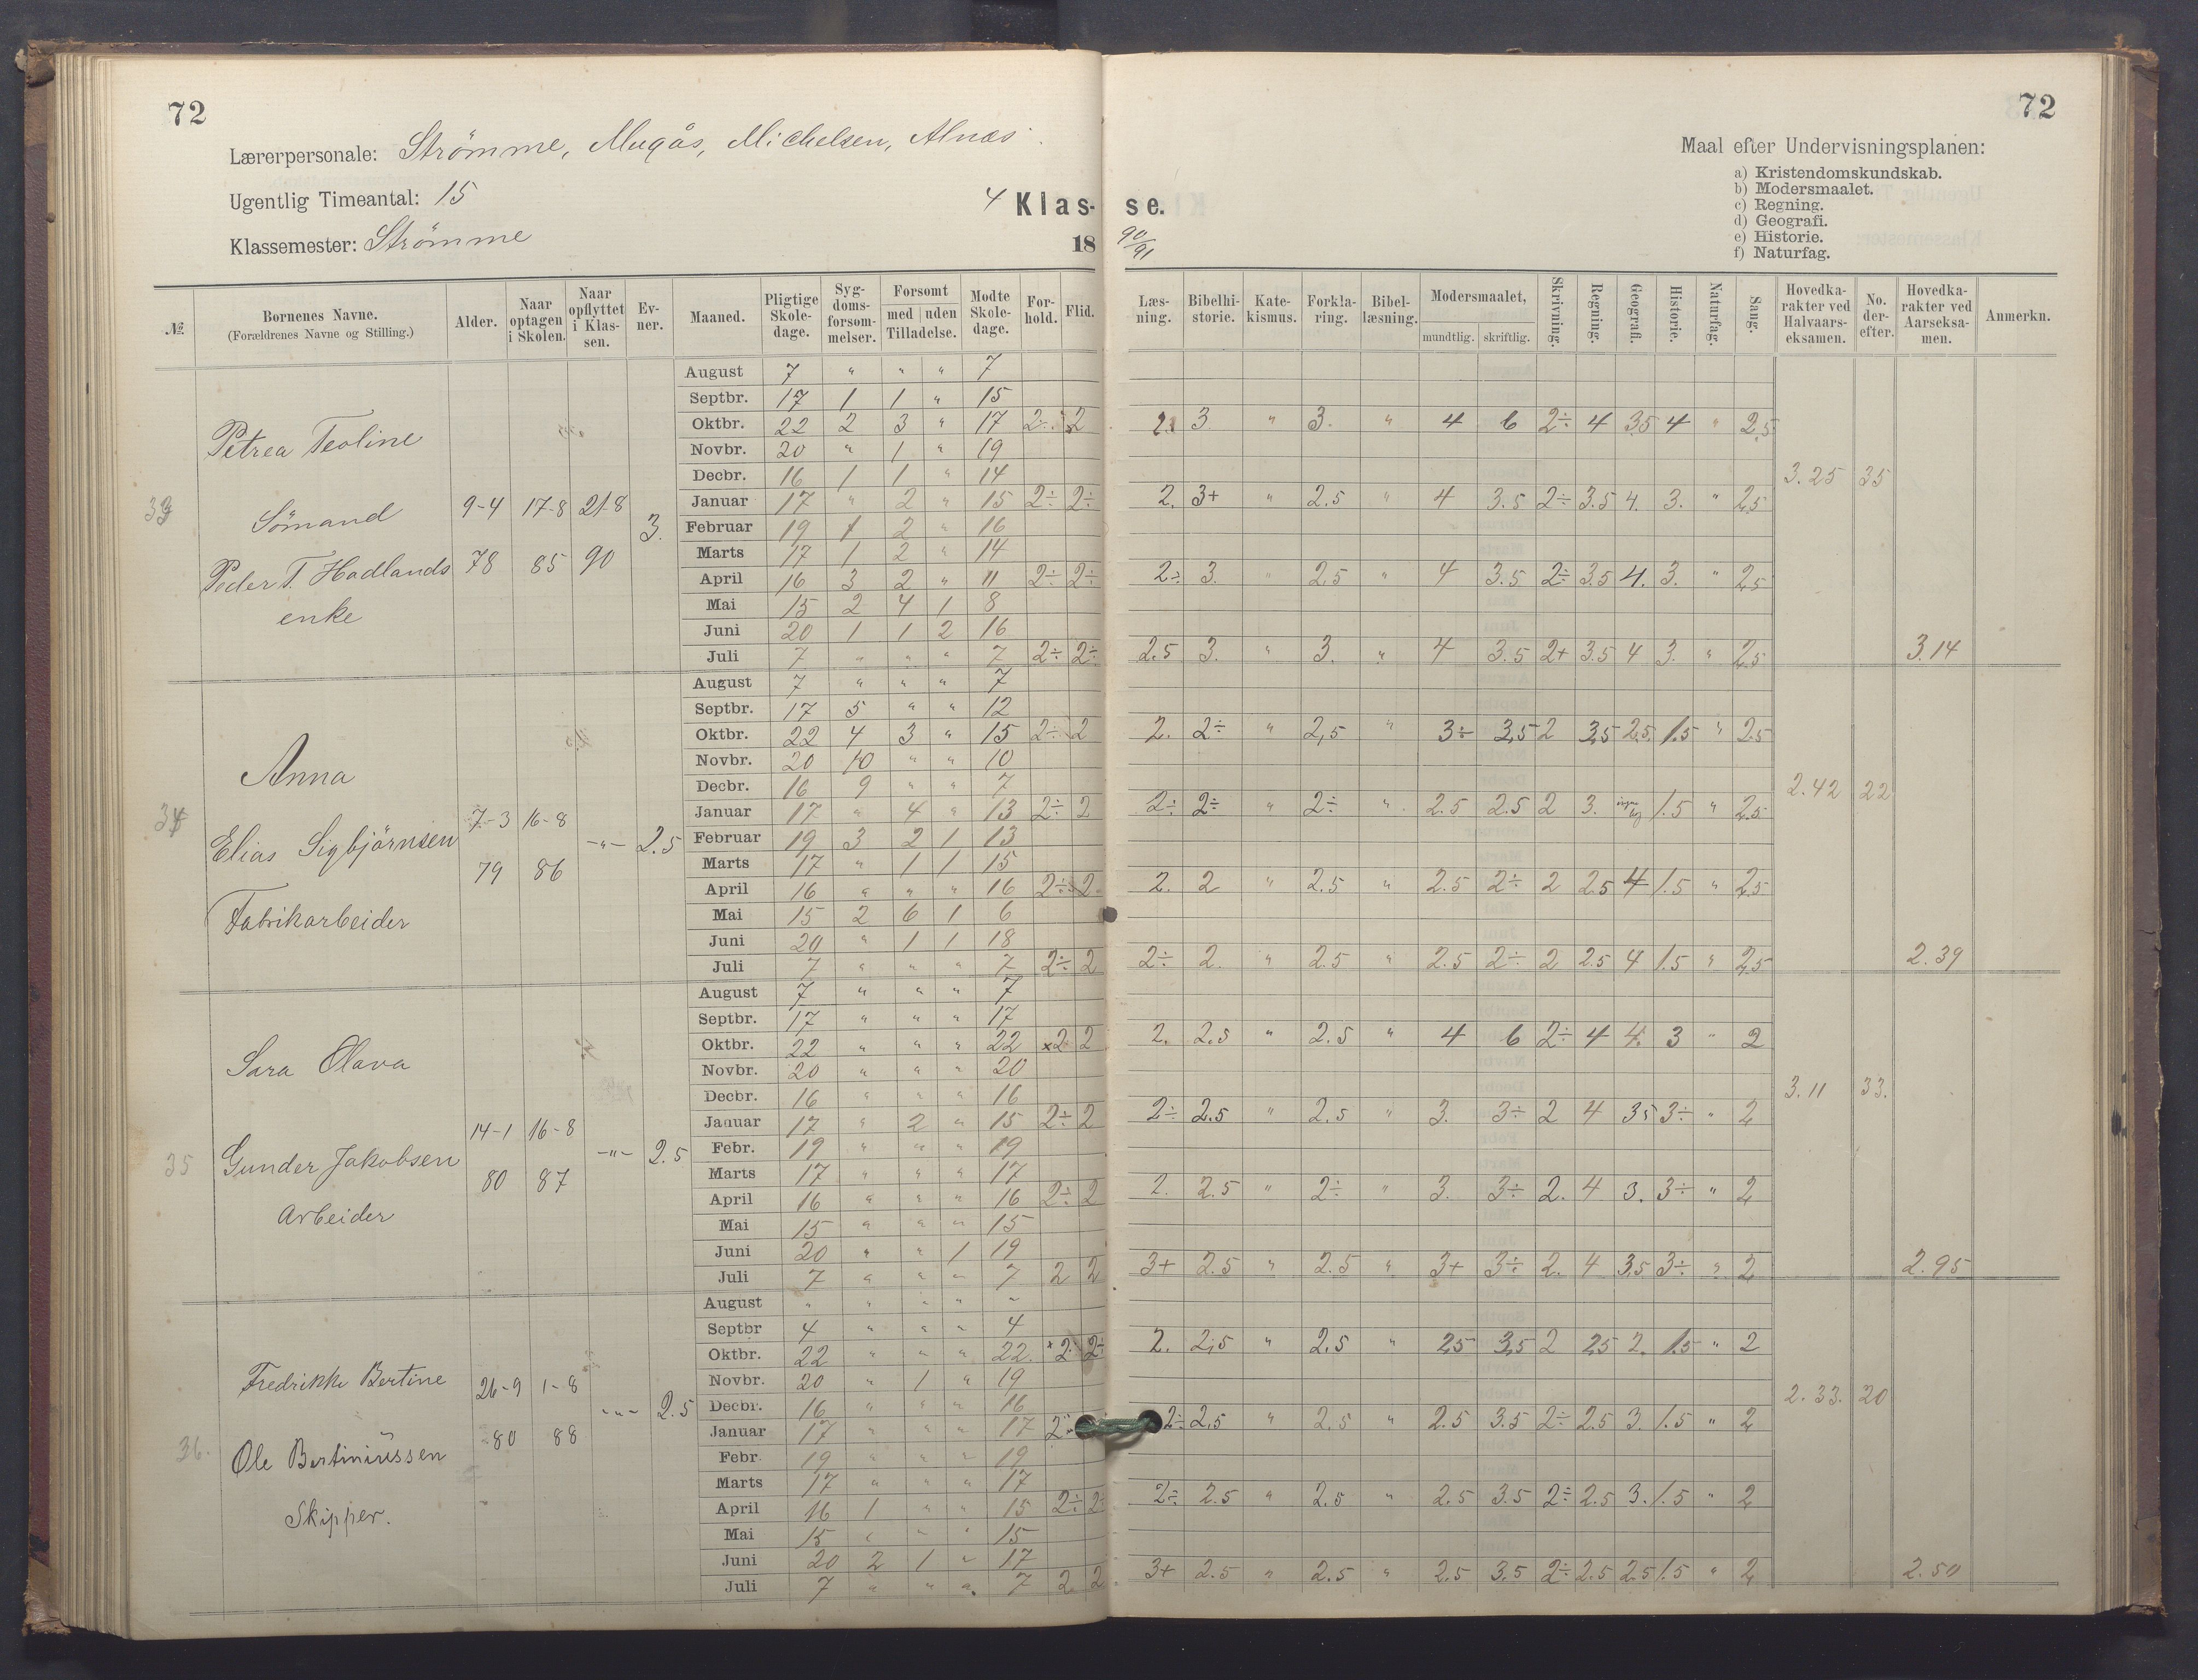 72
72
Lærerpersonale: Strömme, Mugås, Michelsen, Alnæs
Maal efter Undervisningsplanen:
a) Kristendomskundskab.
b) Modersmaalet.
c) Regning.
d) Geografi.
e) Historie.
f) Naturfag.
Ugentlig Timeantal: 15
4 Klas- se.
Klassemester: Strömme
18 90/91
№ | Børnenes Navne. (Forældrenes Navne og Stilling.) | Alder. | Naar optagen i Skolen. | Naar opflyttet i Klassen. | Evner. | Maaned. | Pligtige Skoledage. | Sygdomsforsømmelser. | Forsømt med | uden Tilladelse. | Mødte Skoledage. | Forhold. | Flid. | Læsning. | Bibelhistorie. | Katekismus. | Forklaring. | Bibellæsning. | Modersmaalet, mundtlig. | skriftlig. | Skrivning. | Regning. | Geografi. | Historie. | Naturfag. | Sang. | Hovedkarakter ved Halvaarseksamen. | No. derefter. | Hovedkarakter ved Aarseksamen. | Anmerkn.
33
Petrea Teoline
Sömand
Peder T. Hadlands
enke
9-4 78
17-8 85
21-8 90
3.
August 7 " " " 7
Septbr. 17 1 1 " 15
Oktbr. 22 2 3 " 17 2÷ 2 2. 3 " 3. " 4 6 2÷ 4 3.5 4 " 2.5
Novbr. 20 " 1 " 19
Decbr. 16 1 1 " 14
3.25 35
Januar 17 " 2 " 15 2÷ 2÷ 2. 3+ " 2.5 " 4 3.5 2÷ 3.5 4. 3. " 2.5
Februar 19 1 2 " 16
Marts 17 1 2 " 14
April 16 3 2 " 11 2÷ 2÷ 2÷ 3. " 2.5 " 4 3.5 2÷ 3.5 4. 3. " 2.5
Mai 15 2 4 1 8
Juni 20 1 1 2 16
Juli 7 " " " 7 2÷ 2÷ 2.5 3. " 3. " 4 3.5 2+ 3.5 4 3. " 2.5 3.14
34
Anna
Elias Sigbjörnsen
Fabrikarbeider
7-3 79
16-8 86
-"-
2.5
August 7 " " " 7
Septbr. 17 5 " " 12
Oktbr. 22 4 3 " 15 2÷ 2 2. 2÷ " 2,5 " 3÷ 3,5 2 3,5 2,5 1.5 " 2.5
Novbr. 20 10 " " 10
Decbr. 16 9 " " 7
2.42 22
Januar 17 " 4 " 13 2÷ 2 2÷ 2÷ " 2÷ " 2.5 2.5 2 3. 1.5 " 2.5
Februar 19 3 2 1 13
Marts 17 " 1 1 15
April 16 " " " 16 2÷ 2 2. 2 " 2.5 " 2.5 2÷ 2 2.5 4 1.5 " 2.5
Mai 15 2 6 1 6
Juni 20 " 1 1 18
Juli 7 " " " 7 2÷ 2 2÷ 2. " 2.5 " 2.5 2÷ 2 2.5 4 1.5 " 2.5 2.39
35
Sara Olava
Gunder Jakobsen
Arbeider
14-1 80
16-8 87
-"-
2.5
August 7 " " " 7
Septbr. 17 " " " 17
Oktbr. 22 " " " 22 ×2 2 2. 2.5 " 2.5 " 4 6 2÷ 4 4. 3 " 2
Novbr. 20 " " " 20
Decbr. 16 " " " 16
3.11 33.
Januar 17 " 2 " 15 2÷ 2 2÷ 2.5 " 2.5 " 3. 3÷ 2 4 3.5 3÷ " 2
Febr. 19 " " " 19
Marts 17 " " " 17
April 16 " " " 16 2÷ 2 2. 2.5 " 2÷ " 3. 3÷ 2. 4 3. 3÷ " 2
Mai 15 " " " 15
Juni 20 " " 1 19
Juli 7 " " " 7 2 2 3+ 2.5 " 2.5 " 3+ 3÷ 2. 4 3.5 3÷ " 2 2.95
36.
Fredrikke Bertine
Ole Bertiniussen
Skipper.
26-9 80
1-8 88
-"-
2.5
August " " " " "
Septbr 4 " " " 4
Oktbr. 22 " " " 22. ×2 2÷ 2. 2,5 " 2.5 " 2,5 3,5 2 2,5 2. 1.5 " 2
Novbr. 20 " 1 " 19
Decbr. 16 " " " 16
2.33. 20
Januar 17 " " " 17 2÷ 2÷ 2,5 " 2.5 " 2.5 3.5 2÷ 2.5 3. 1.5 " 2
Febr 19 " " " 19
Marts 17 " " " 17
April 16 1 " " 15 2÷ 2÷ 2÷ 2.5 " 2.5 " 2.5 3.5 2÷ 2.5 3. 1.5 " 2
Mai 15 " " " 15
Juni 20 2 1 " 17
Juli 7 " " " 7 2 2 3+ 2.5 " 2.5 " 2.5 3,5 2÷ 2.5 2.5 1.5 " 2 2.50